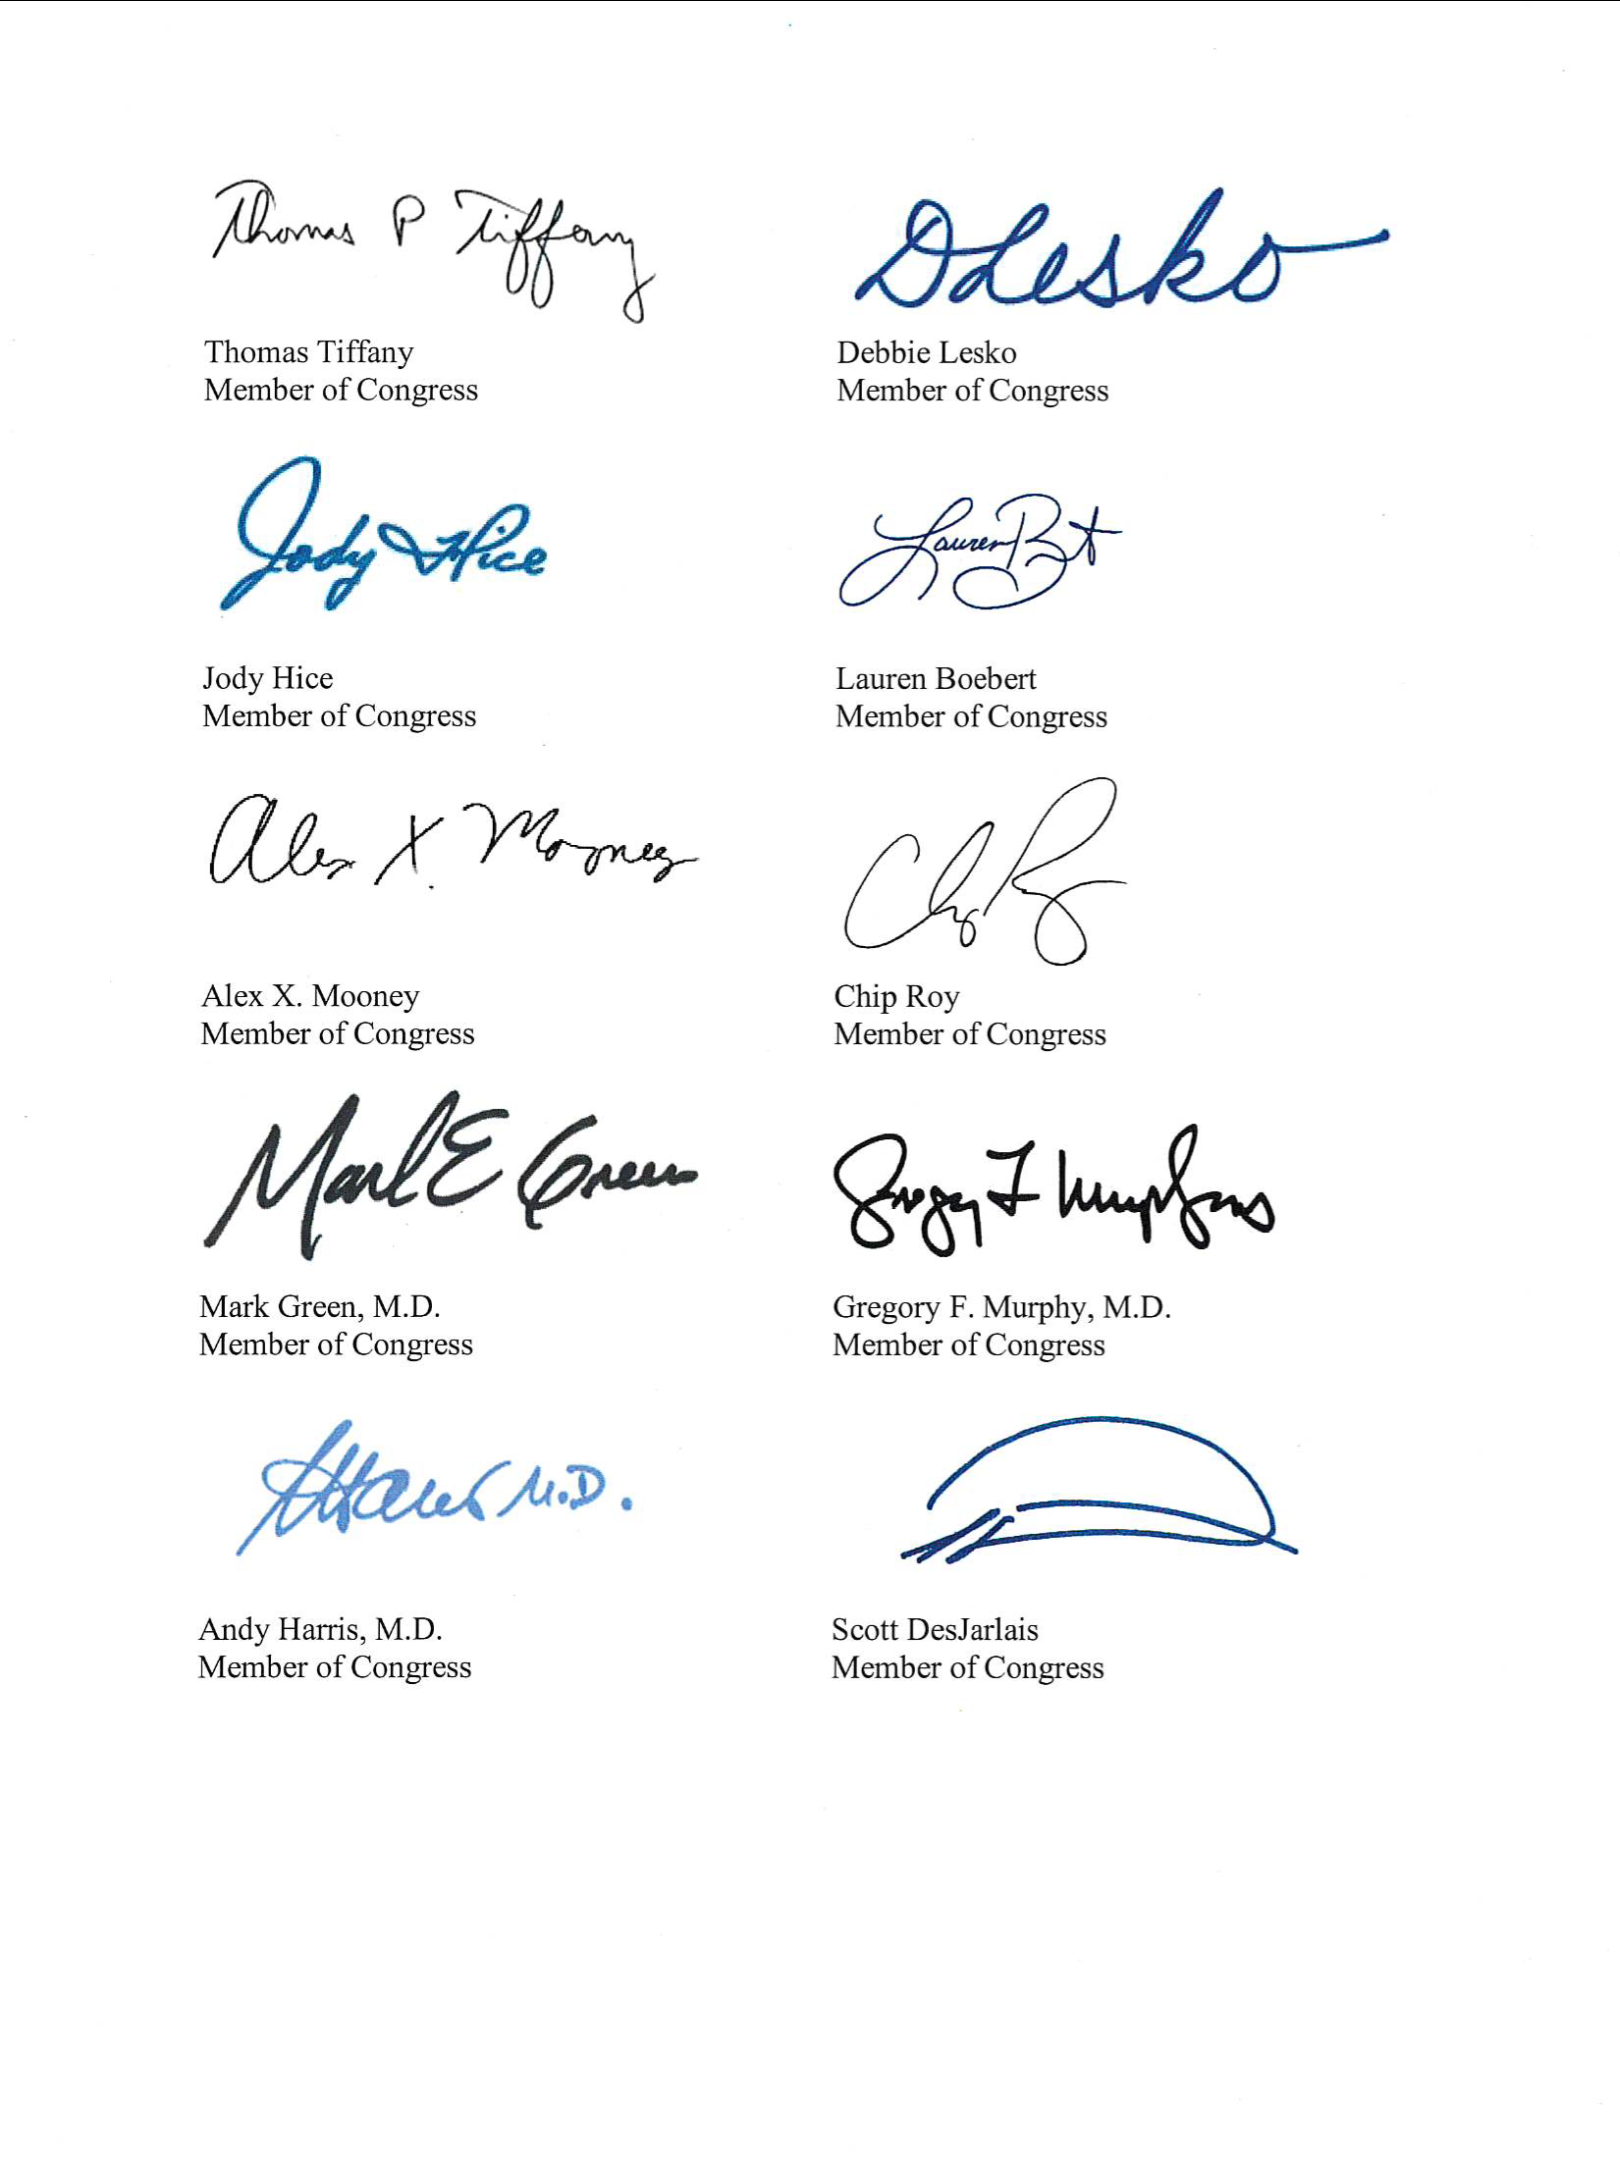 Thomas P Tiffany
DLesko
Thomas Tiffany
Member of Congress
Debbie Lesko
Member of Congress
Jody Hice
Lauren
Jody Hice
Member of Congress
Lauren Boebert
Member of Congress
Alex X. Mooney
Chip Roy
Alex X. Mooney
Member of Congress
Chip Roy
Member of Congress
Mark E Green
Gregory F Murphy
Mark Green, M.D.
Member of Congress
Gregory F. Murphy, M.D.
Member of Congress
Harris M.D.
Andy Harris, M.D.
Member of Congress
Scott DesJarlais
Member of Congress